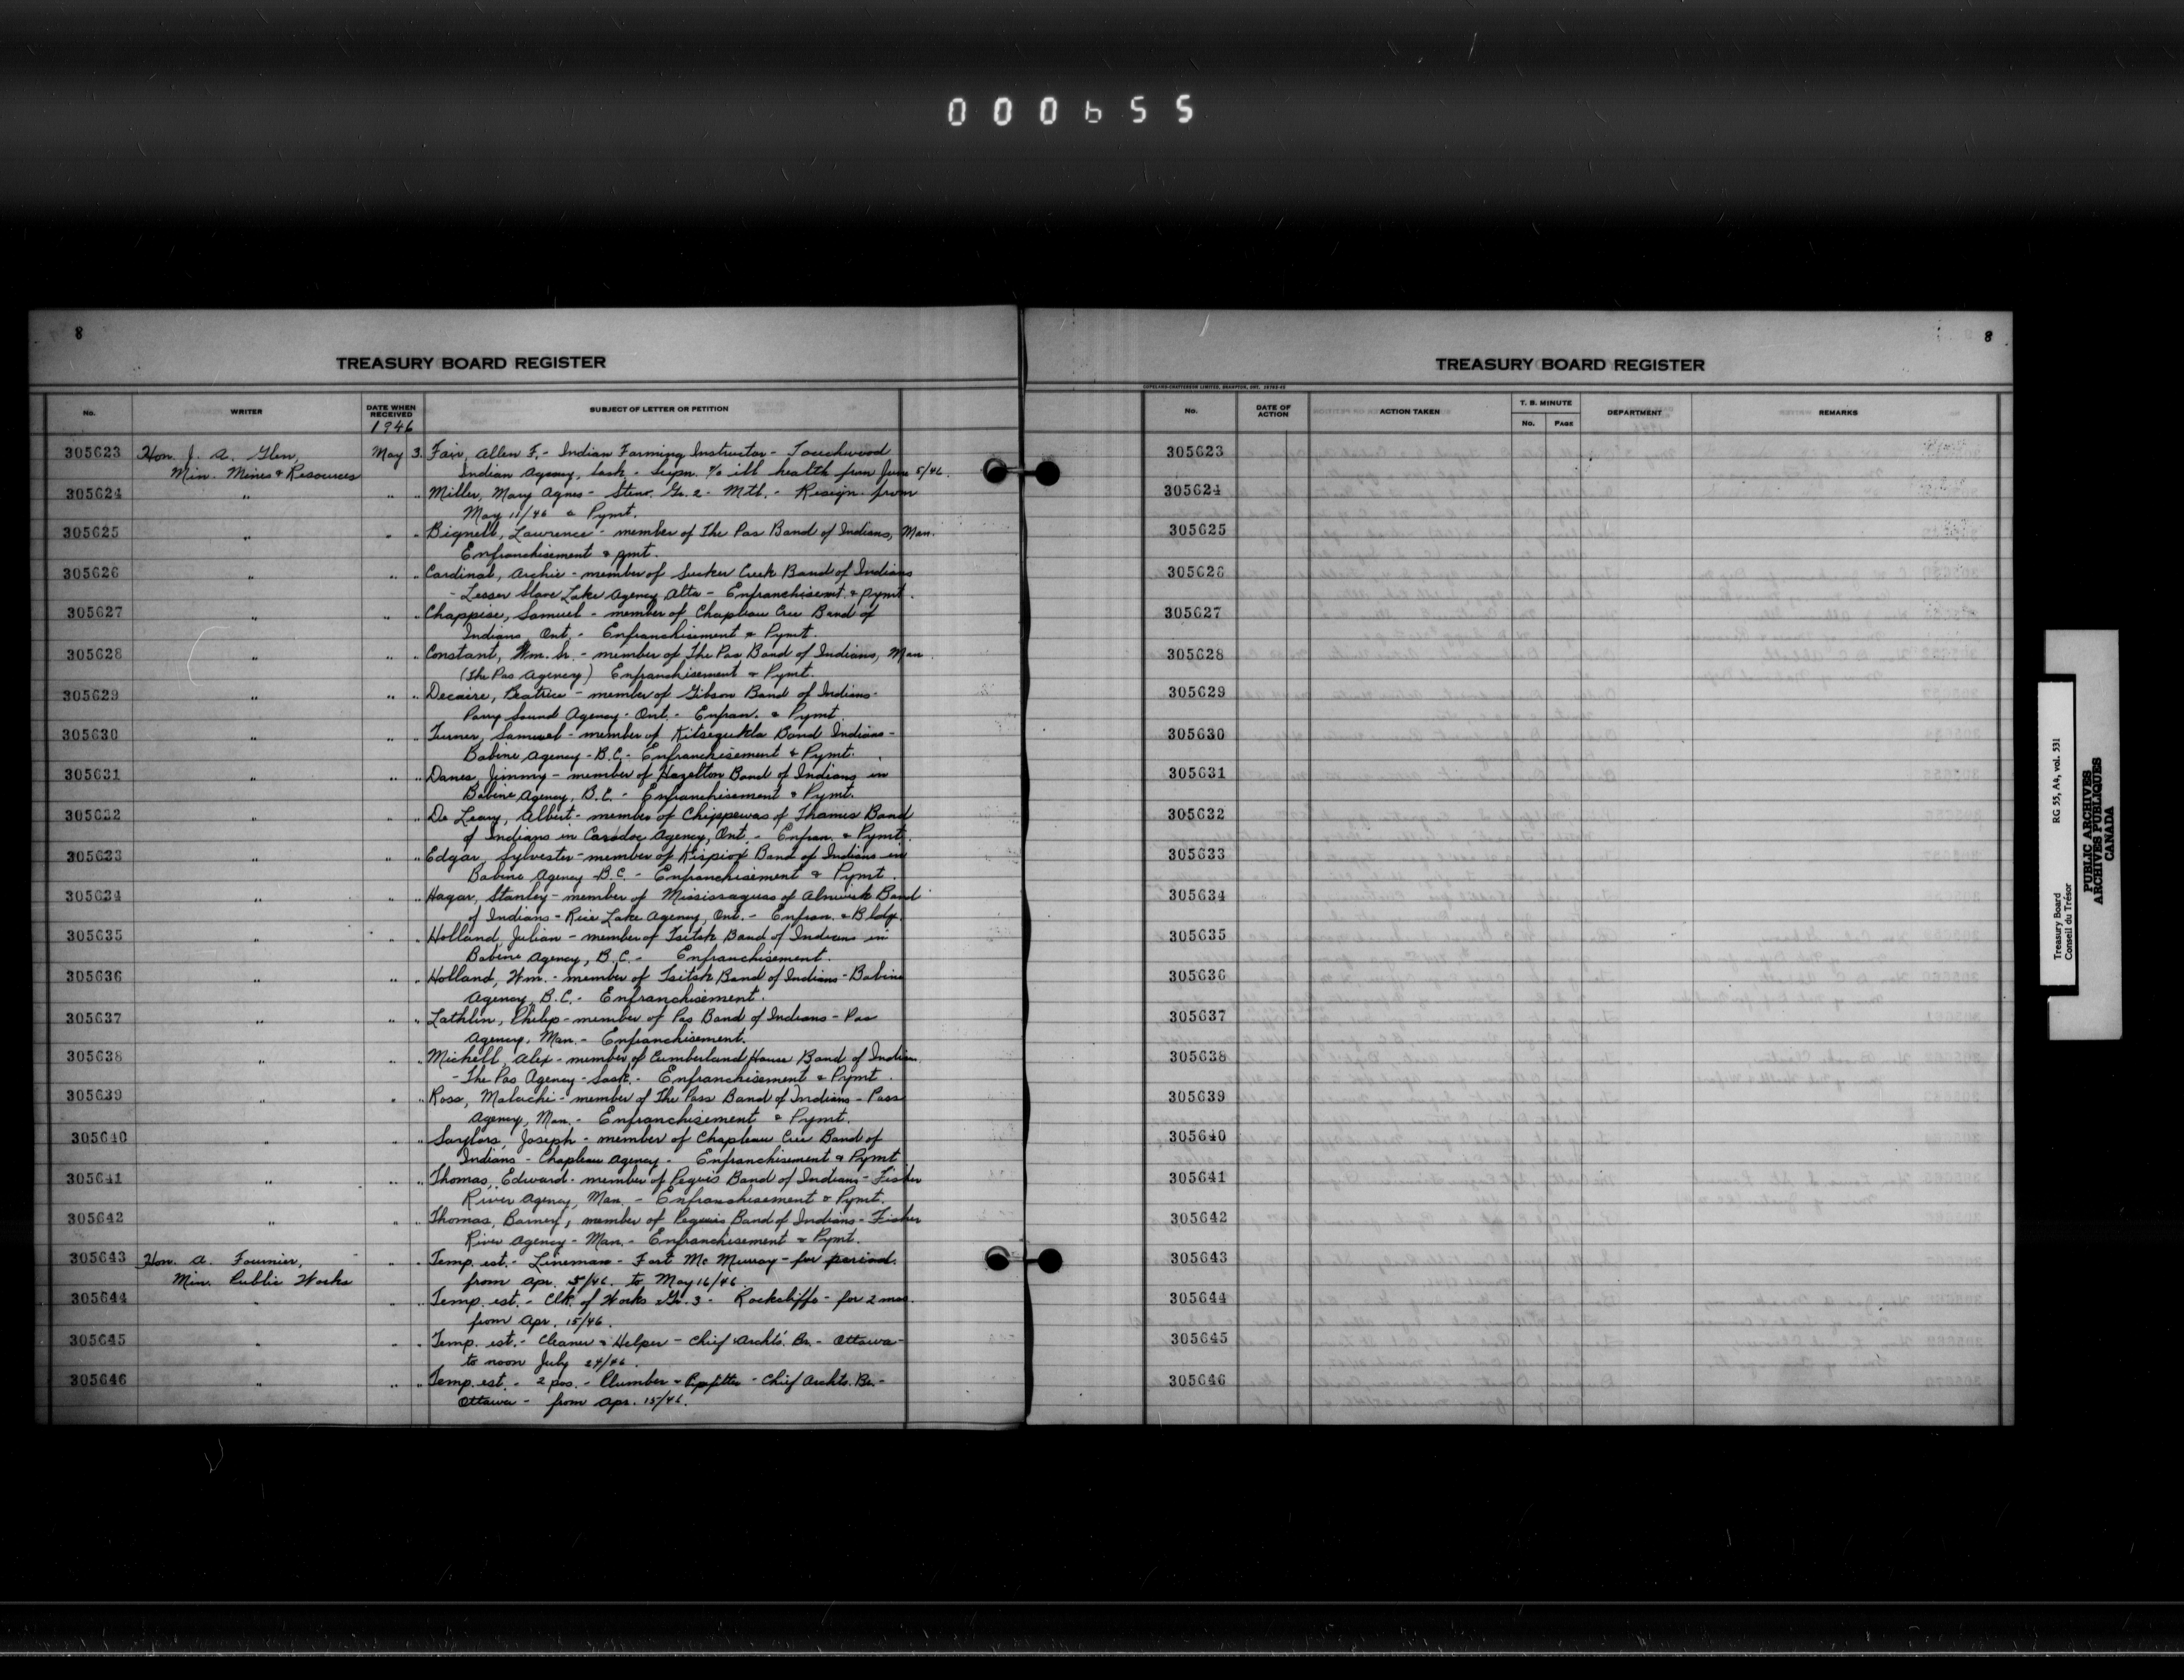 000655
8
TREASURY BOARD REGISTER
No. WRITER DATE WHEN RECEIVED SUBJECT OF LETTER OR PETITION
1946
305623 Hon. J. A. Glen, May 3. Fair, Allen F. - Indian Farming Instructor - Touchwood
Min. Mines & Resources Indian Agency, Sask - Supn. % ill health from June 5/46.
305624 " " " Miller, Mary Agnes - Steno. Gr. 2 - Mtl. - Resign. from
May 11/46 & Pymt.
305625 " " " Bignell, Lawrence - member of The Pas Band of Indians, Man.
Enfranchisement & pmt.
305626 " " " Cardinal, Archie - member of Sucker Creek Band of Indians
- Lesser Slave Lake Agency Alta - Enfranchisemt. & pymt.
305627 " " " Chappise, Samuel - member of Chapleau Cree Band of
Indians, Ont. - Enfranchisement & Pymt.
305628 " " " Constant, Wm. Sr. - member of The Pas Band of Indians, Man.
(The Pas Agency) Enfranchisement & Pymt.
305629 " " " Decaire, Beatrice - member of Gibson Band of Indians -
Parry Sound Agency - Ont. - Enfran. & Pymt.
305630 " " " Turner, Samuel - member of Kitsegukla Band Indians -
Babine Agency - B.C. - Enfranchisement & Pymt.
305631 " " " Danes, Jimmy - member of Hazelton Band of Indians in
Babine Agency, B.C. - Enfranchisement & Pymt.
305632 " " " De Leary, Albert - member of Chippewas of Thames Band
of Indians in Caradoc Agency, Ont. - Enfran. & Pymt.
305633 " " " Edgar, Sylvester - member of Kispiox Band of Indians in
Babine Agency B.C. - Enfranchisement & Pymt.
305634 " " " Hagar, Stanley - member of Mississaguas of Alnwick Band
of Indians - Rice Lake Agency, Ont. - Enfran. & Bldg.
305635 " " " Holland, Julian - member of Tsitsk Band of Indians in
Babine Agency, B.C. - Enfranchisement.
305636 " " " Holland, Wm. - member of Tsitsk Band of Indians - Babine
Agency, B.C. - Enfranchisement.
305637 " " " Lathlin, Philip - member of Pas Band of Indians - Pas
Agency, Man. - Enfranchisement.
305638 " " " Michell, Alex - member of Cumberland House Band of Indian.
- The Pas Agency - Sask. - Enfranchisement & Pymt.
305639 " " " Ross, Malachi - member of The Pass Band of Indians - Pass
Agency, Man. - Enfranchisement & Pymt.
305640 " " " Saylors, Joseph - member of Chapleau Cree Band of
Indians - Chapleau Agency - Enfranchisement & Pymt
305641 " " " Thomas, Edward - member of Peguis Band of Indians - Fisher
River Agency, Man. - Enfranchisement & Pymt.
305642 " " " Thomas, Barney, member of Peguis Band of Indians - Fisher
River Agency - Man. - Enfranchisement & Pymt.
305643 Hon. A. Fournier, " " Temp. est. - Lineman - Fort Mc Murray - for period
Min. Public Works from Apr. 5/46. to May 16/46.
305644 " " " Temp. est. - Clk. of Works Gr. 3 - Rockcliffe - for 2 mos.
from Apr. 15/46.
305645 " " " Temp. est. - Cleaner & Helper - Chief Archts. Br. - Ottawa -
to noon July 24/46.
305646 " " " Temp. est. - 2 pos. - Plumber & Pipefitter - Chief Archts. Br. -
Ottawa - from Apr. 15/46.
8
TREASURY BOARD REGISTER
No. DATE OF ACTION ACTION TAKEN T. B. MINUTE No. PAGE DEPARTMENT REMARKS
305623
305624
305625
305626
305627
305628
305629
305630
305631
305632
305633
305634
305635
305636
305637
305638
305639
305640
305641
305642
305643
305644
305645
305646
Treasury Board RG 55, A4, vol. 531
Conseil du Trésor
PUBLIC ARCHIVES
ARCHIVES PUBLIQUES
CANADA